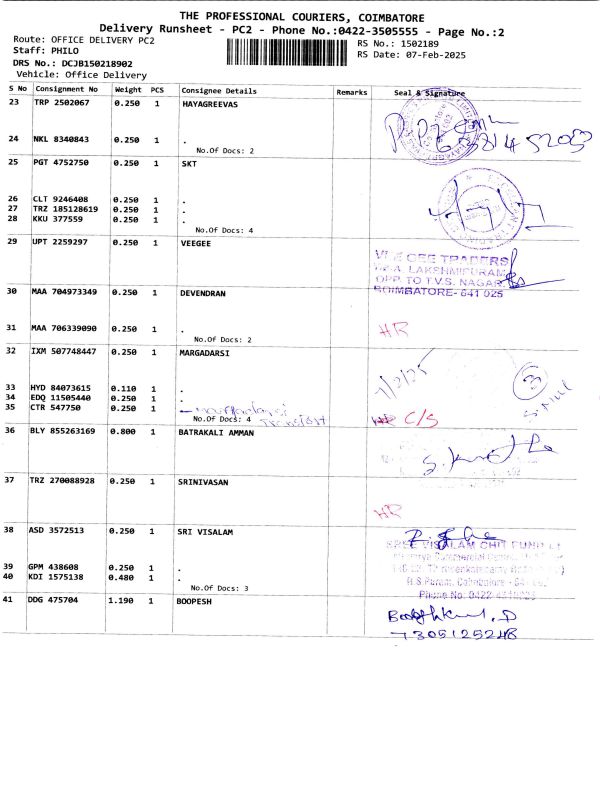 THE PROFESSIONAL COURIERS, COIMBATORE
Delivery Runsheet - PC2 - Phone No.:0422-3505555 - Page No.:2
Route: OFFICE DELIVERY PC2
Staff: PHILO
RS No.: 1502189
RS Date: 07-Feb-2025
DRS No.: DCJB150218902
Vehicle: Office Delivery
S No Consignment No Weight PCS Consignee Details Remarks Seal & Signature
23 TRP 2502067 0.250 1 HAYAGREEVAS
24 NKL 8340843 0.250 1 .
No.Of Docs: 2
25 PGT 4752750 0.250 1 SKT
26 CLT 9246408 0.250 1 .
27 TRZ 185128619 0.250 1 .
28 KKU 377559 0.250 1 .
No.Of Docs: 4
29 UPT 2259297 0.250 1 VEEGEE
VEE GEE TRADERS
LAKSHMIPURAM
OPP. TO T.V.S. NAGAR
COIMBATORE- 641 025
30 MAA 704973349 0.250 1 DEVENDRAN
31 MAA 706339090 0.250 1 .
No.Of Docs: 2
HR
32 IXM 507748447 0.250 1 MARGADARSI
7/2/25
3
33 HYD 84073615 0.110 1 .
34 EDQ 11505440 0.250 1 .
35 CTR 547750 0.250 1 .
No.Of Docs: 4
C/S
36 BLY 855263169 0.800 1 BATRAKALI AMMAN
37 TRZ 270088928 0.250 1 SRINIVASAN
HR
38 ASD 3572513 0.250 1 SRI VISALAM
SREE VISALAM CHIT FUND
39 GPM 438608 0.250 1 .
40 KDI 1575138 0.480 1 .
No.Of Docs: 3
R.S. Puram, Coimbatore
Phone No: 0422
41 DDG 475704 1.190 1 BOOPESH
7305125248